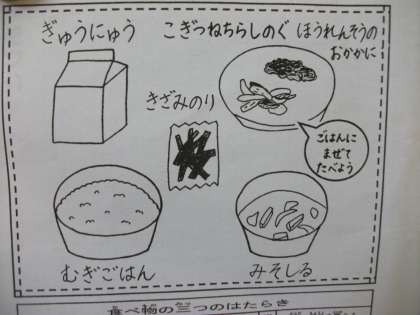 ぎゅうにゅう
こぎつねちらしのぐ
ほうれんそうの
おかかに
きざみのり
ごはんに
まぜて
たべよう
むぎごはん
みそしる
食べ物の三つのはたらき